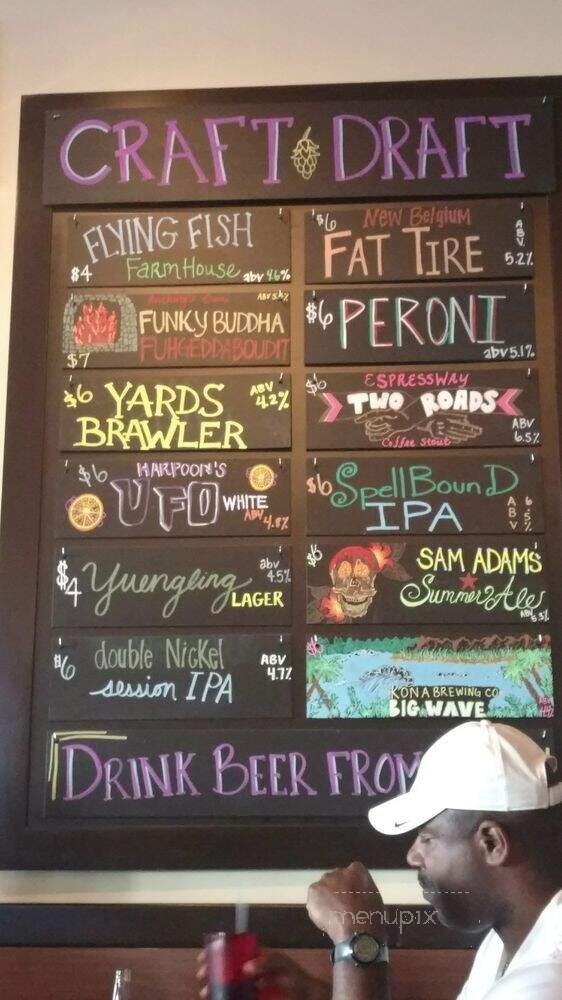 CRAFT DRAFT
FLYING FISH
$4 FarmHouse abv 4.6%
$6 New Belgium
FAT TIRE
ABV 5.2%
FUNKY BUDDHA
FUHGEDDABOUDIT
$7
$6 PERONI
abv 5.1%
$6 YARDS
BRAWLER
ABV 4.2%
$6 ESPRESSWAY
TWO ROADS
Coffee Stout
ABV 6.5%
$6 HARPOON'S
UFO WHITE
ABV 4.8%
$6 SpellBounD
IPA
ABV 6.5%
$4 Yuengling
LAGER
abv 4.5%
$6 SAM ADAMS
Summer Ale
ABV 5.3%
$6 double Nickel
session IPA
ABV 4.7%
KONA BREWING CO
BIG WAVE
DRINK BEER FROM
menupix